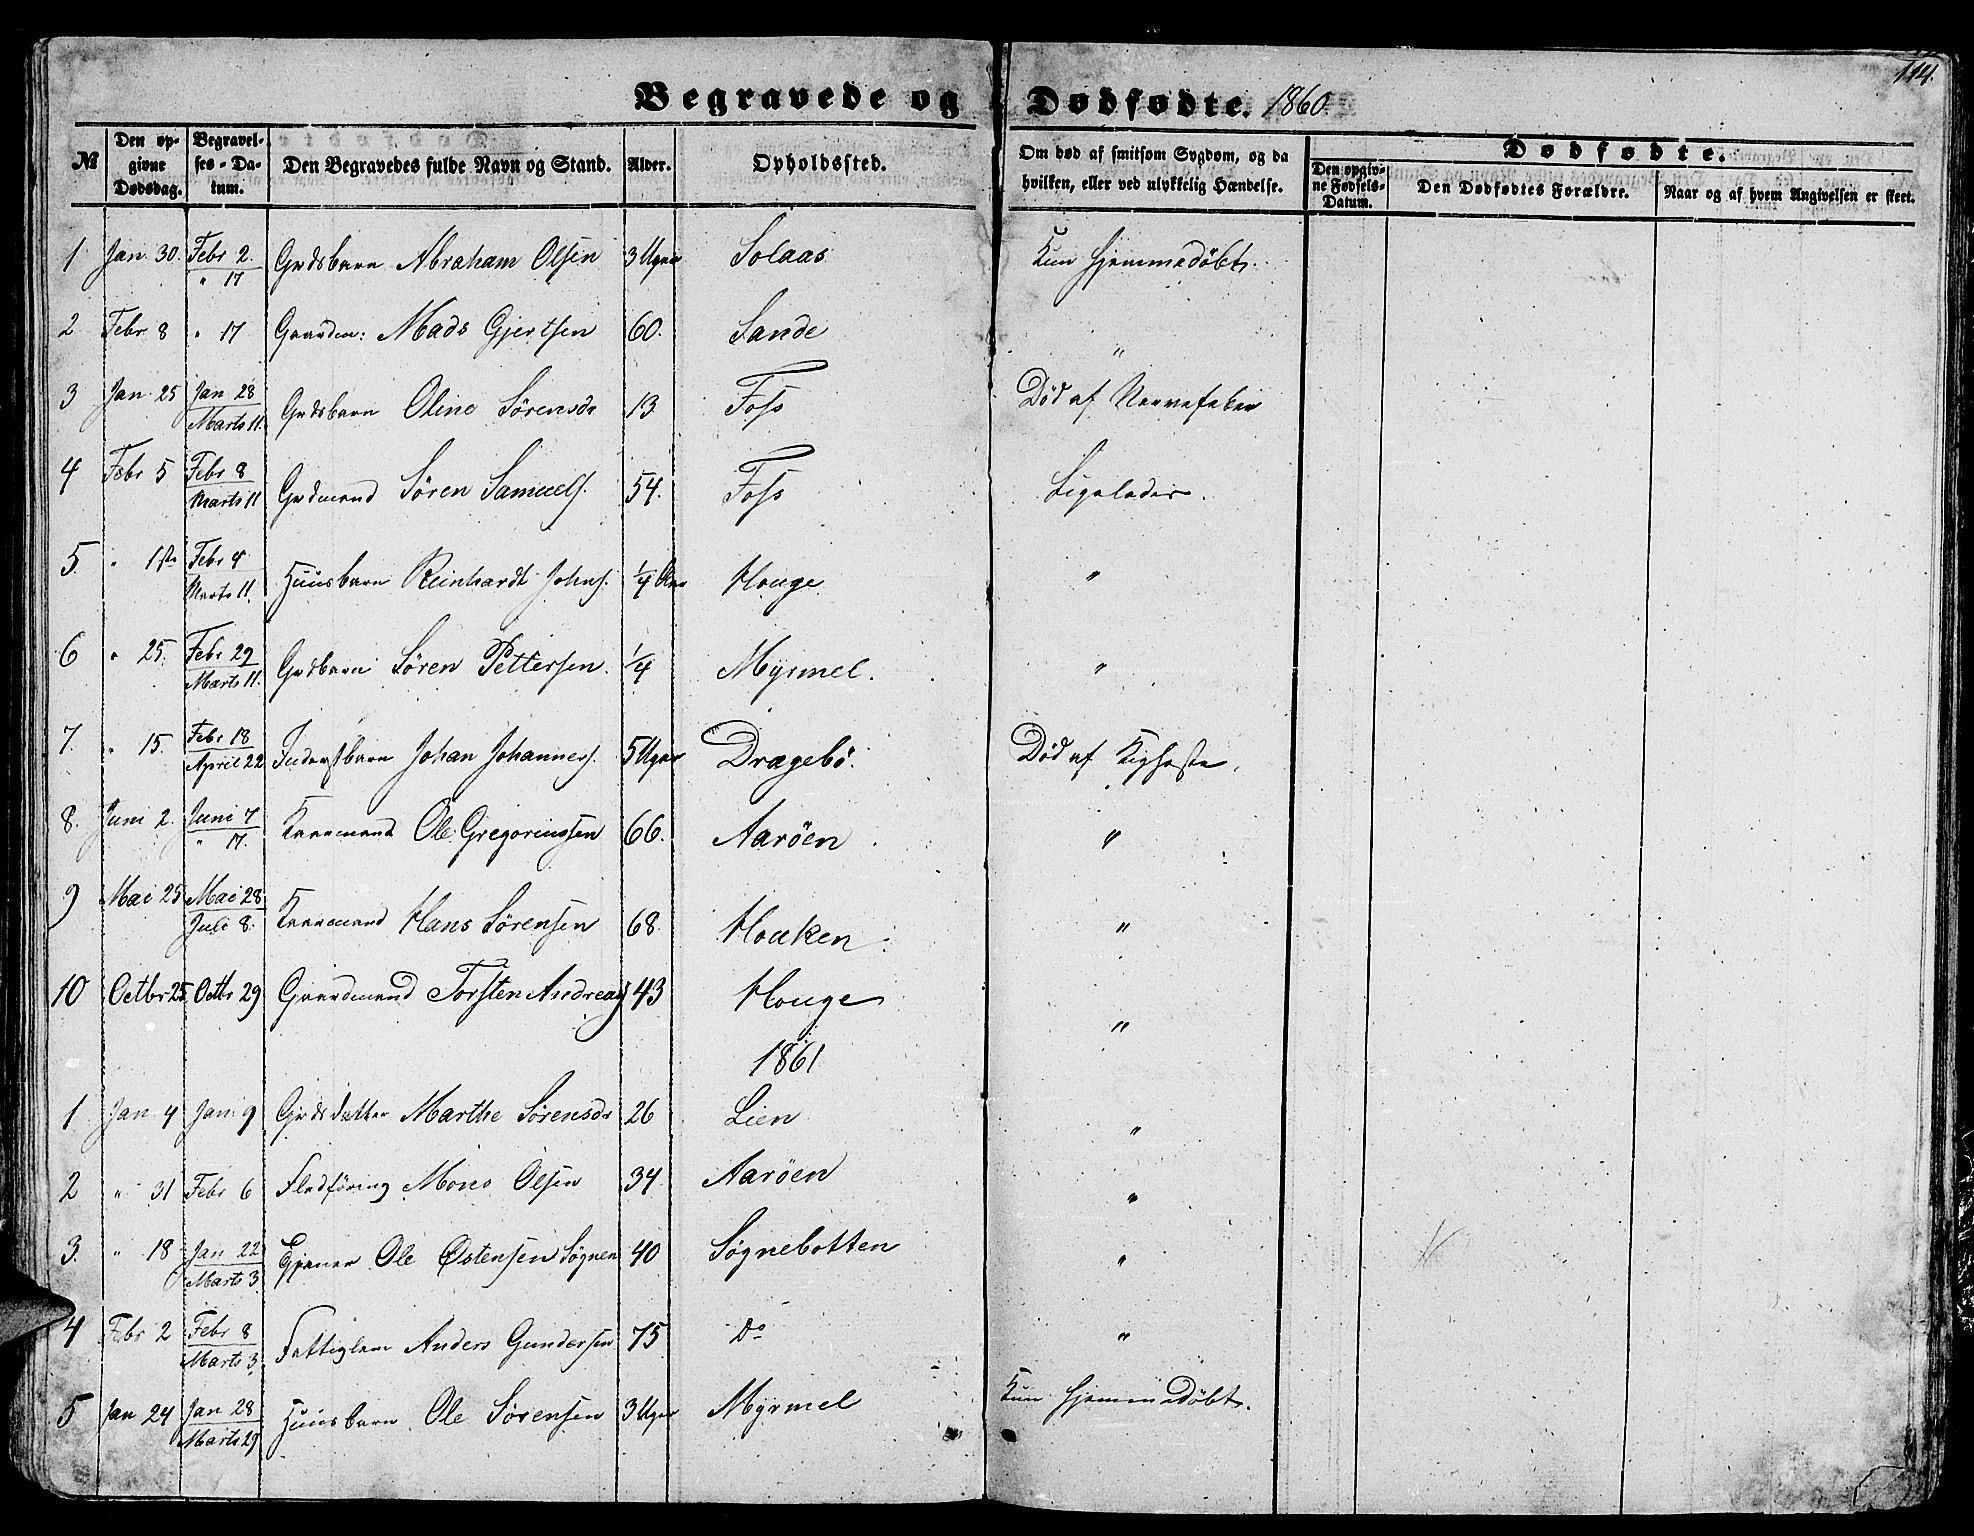 114.
Begravede og Dødfødte. 1860.
№ | Den opgivne Dødsdag. | Begravelses-Datum. | Den Begravedes fulde Navn og Stand. | Alder. | Opholdssted. | Om død af smitsom Sygdom, og da hvilken, eller ved ulykkelig Hændelse. | Dødfødte.
Den opgivne Fødsels-Datum. | Den Dødfødtes Forældre. | Naar og af hvem Angivelsen er skeet.
1 | Jan 30. | Febr 2. / " 17 | Grdsbarn Abraham Olsen | 3 Uger | Solaas | Kun hjemmedøbt.
2 | Febr 8 | " 17 | Gaardm: Mads Gjertsen | 60. | Sande | "
3 | Jan 25 | Jan 28 / Marts 11. | Grdsbarn Oline Sørensdr | 13 | Foss | Død af Nervefeber
4 | Febr 5 | Febr 8 / Marts 11 | Grdmand Sören Samuels. | 54. | Foss | Ligeledes.
5. | " 1ste | Febr 4 / Marts 11. | Huusbarn Reinhardt Johns. | 1/4 Aar | Houge | "
6 | " 25. | Febr 29 / Marts 11. | Grdbarn Sören Pettersen. | 1/4 | Myrmel. | "
7. | " 15. | Febr 18 / April 22 | Inderstbarn Johan Johanness. | 5 Uger | Dragebö. | Död af Kighoste.
8. | Juni 2. | Juni 7 / " 17. | Kaarmand Ole Gregoriussen | 66. | Aaröen | "
9 | Mai 25 | Mai 28 / Juli 8. | Kaarmand Hans Sørensen | 68 | Houken | "
10 | Octbr 25 | Octbr 29 | Gaardmand Torsten Andreas | 43 | Houge | "
1861
1 | Jan 4 | Jan 9 | Grdsdatter Marthe Sørensdr | 26 | Lien | "
2 | " 31 | Febr 6 | Fledföring Mons Olsen | 34 | Aarøen | "
3. | " 18 | Jan 22 / Marts 3 | Ole Østensen Søgnen | 40 | Søgnebotten | "
4 | Febr 2 | Febr 8 / Marts 3. | Fattiglem Anders Gundersen | 75 | Do | "
5 | Jan 24 | Jan 28 / Marts 29 | Huusbarn Ole Sørensen | 3 Uger | Myrmel | Kun hjemmedöbt.